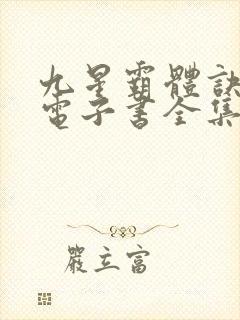 九星霸體訣
電子書全集
嚴立富